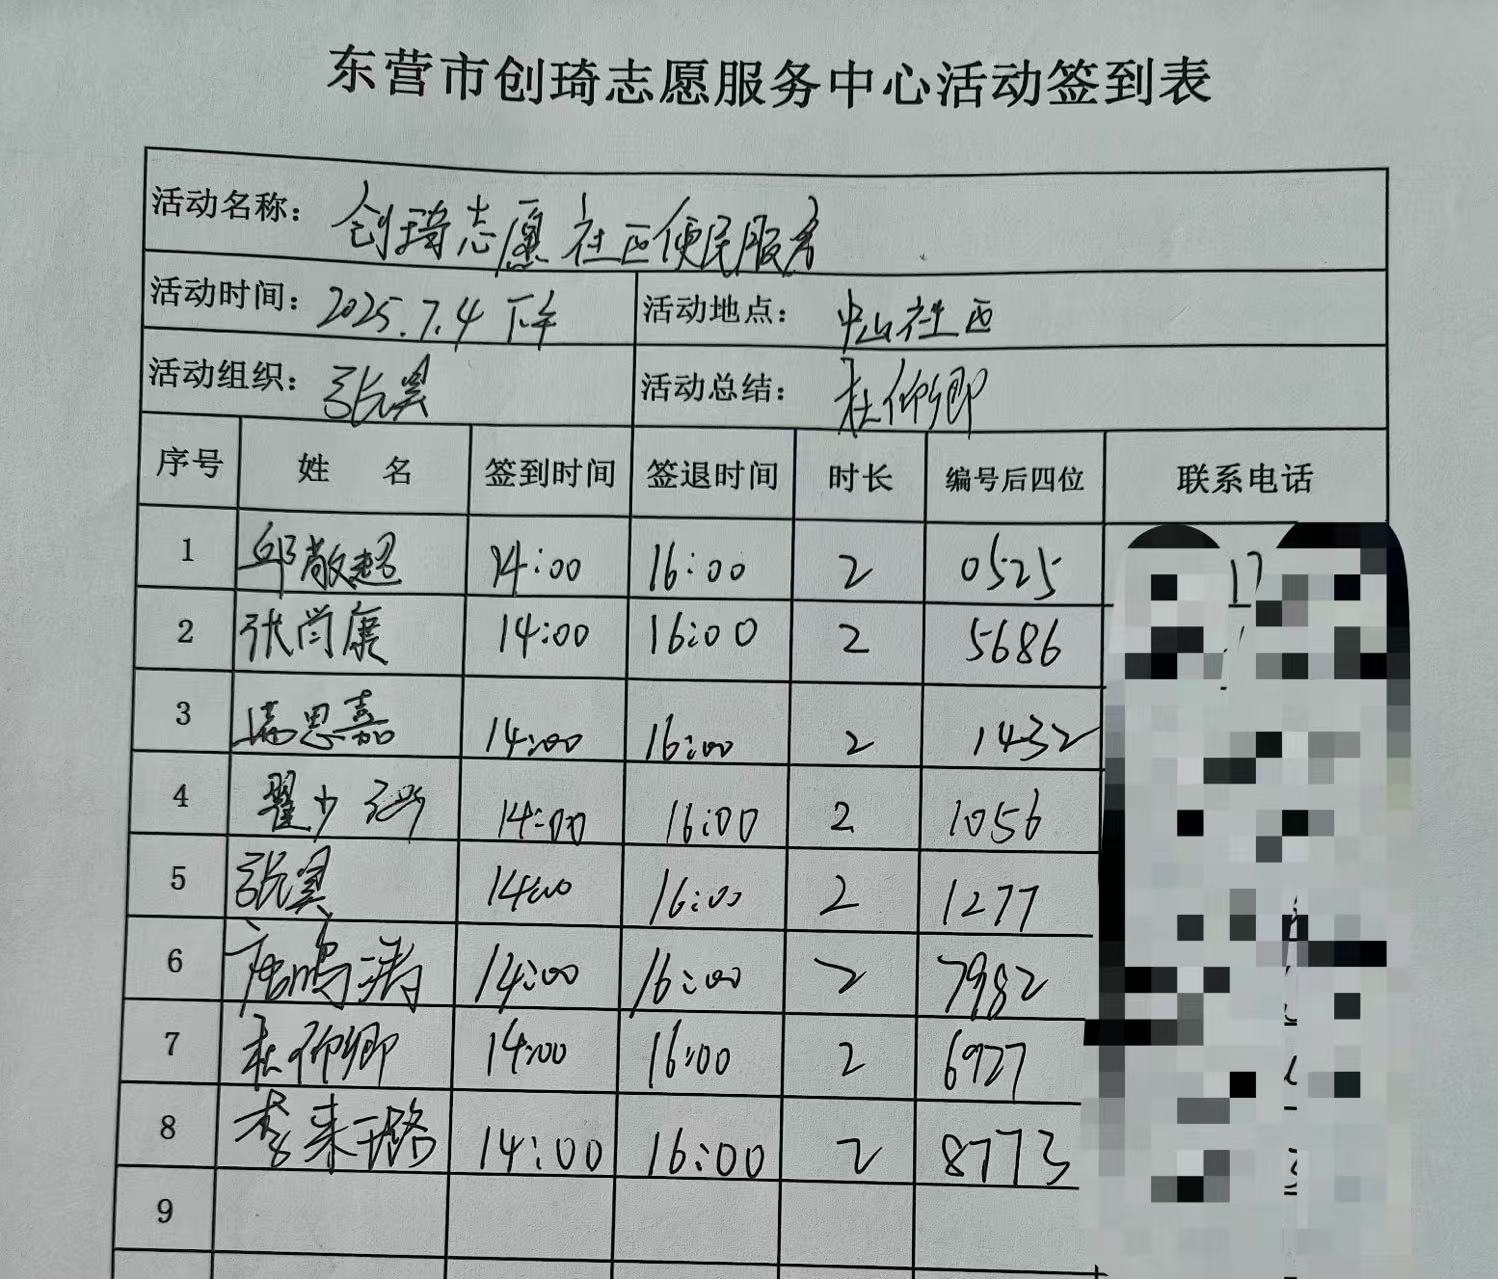 东营市创琦志愿服务中心活动签到表
活动名称： 创琦志愿社区便民服务
活动时间： 2025.7.4 下午 活动地点： 中山社区
活动组织： 张昊 活动总结： 杜仰卿
序号 姓 名 签到时间 签退时间 时长 编号后四位 联系电话
1 邱敬超 14:00 16:00 2 0525 17
2 张尚康 14:00 16:00 2 5686
3 思嘉 14:00 16:00 2 1432
4 翟少 14:00 16:00 2 1056
5 张昊 14:00 16:00 2 1277
6 唐鸣涛 14:00 16:00 2 7982
7 杜仰卿 14:00 16:00 2 6927
8 李来璐 14:00 16:00 2 8773
9